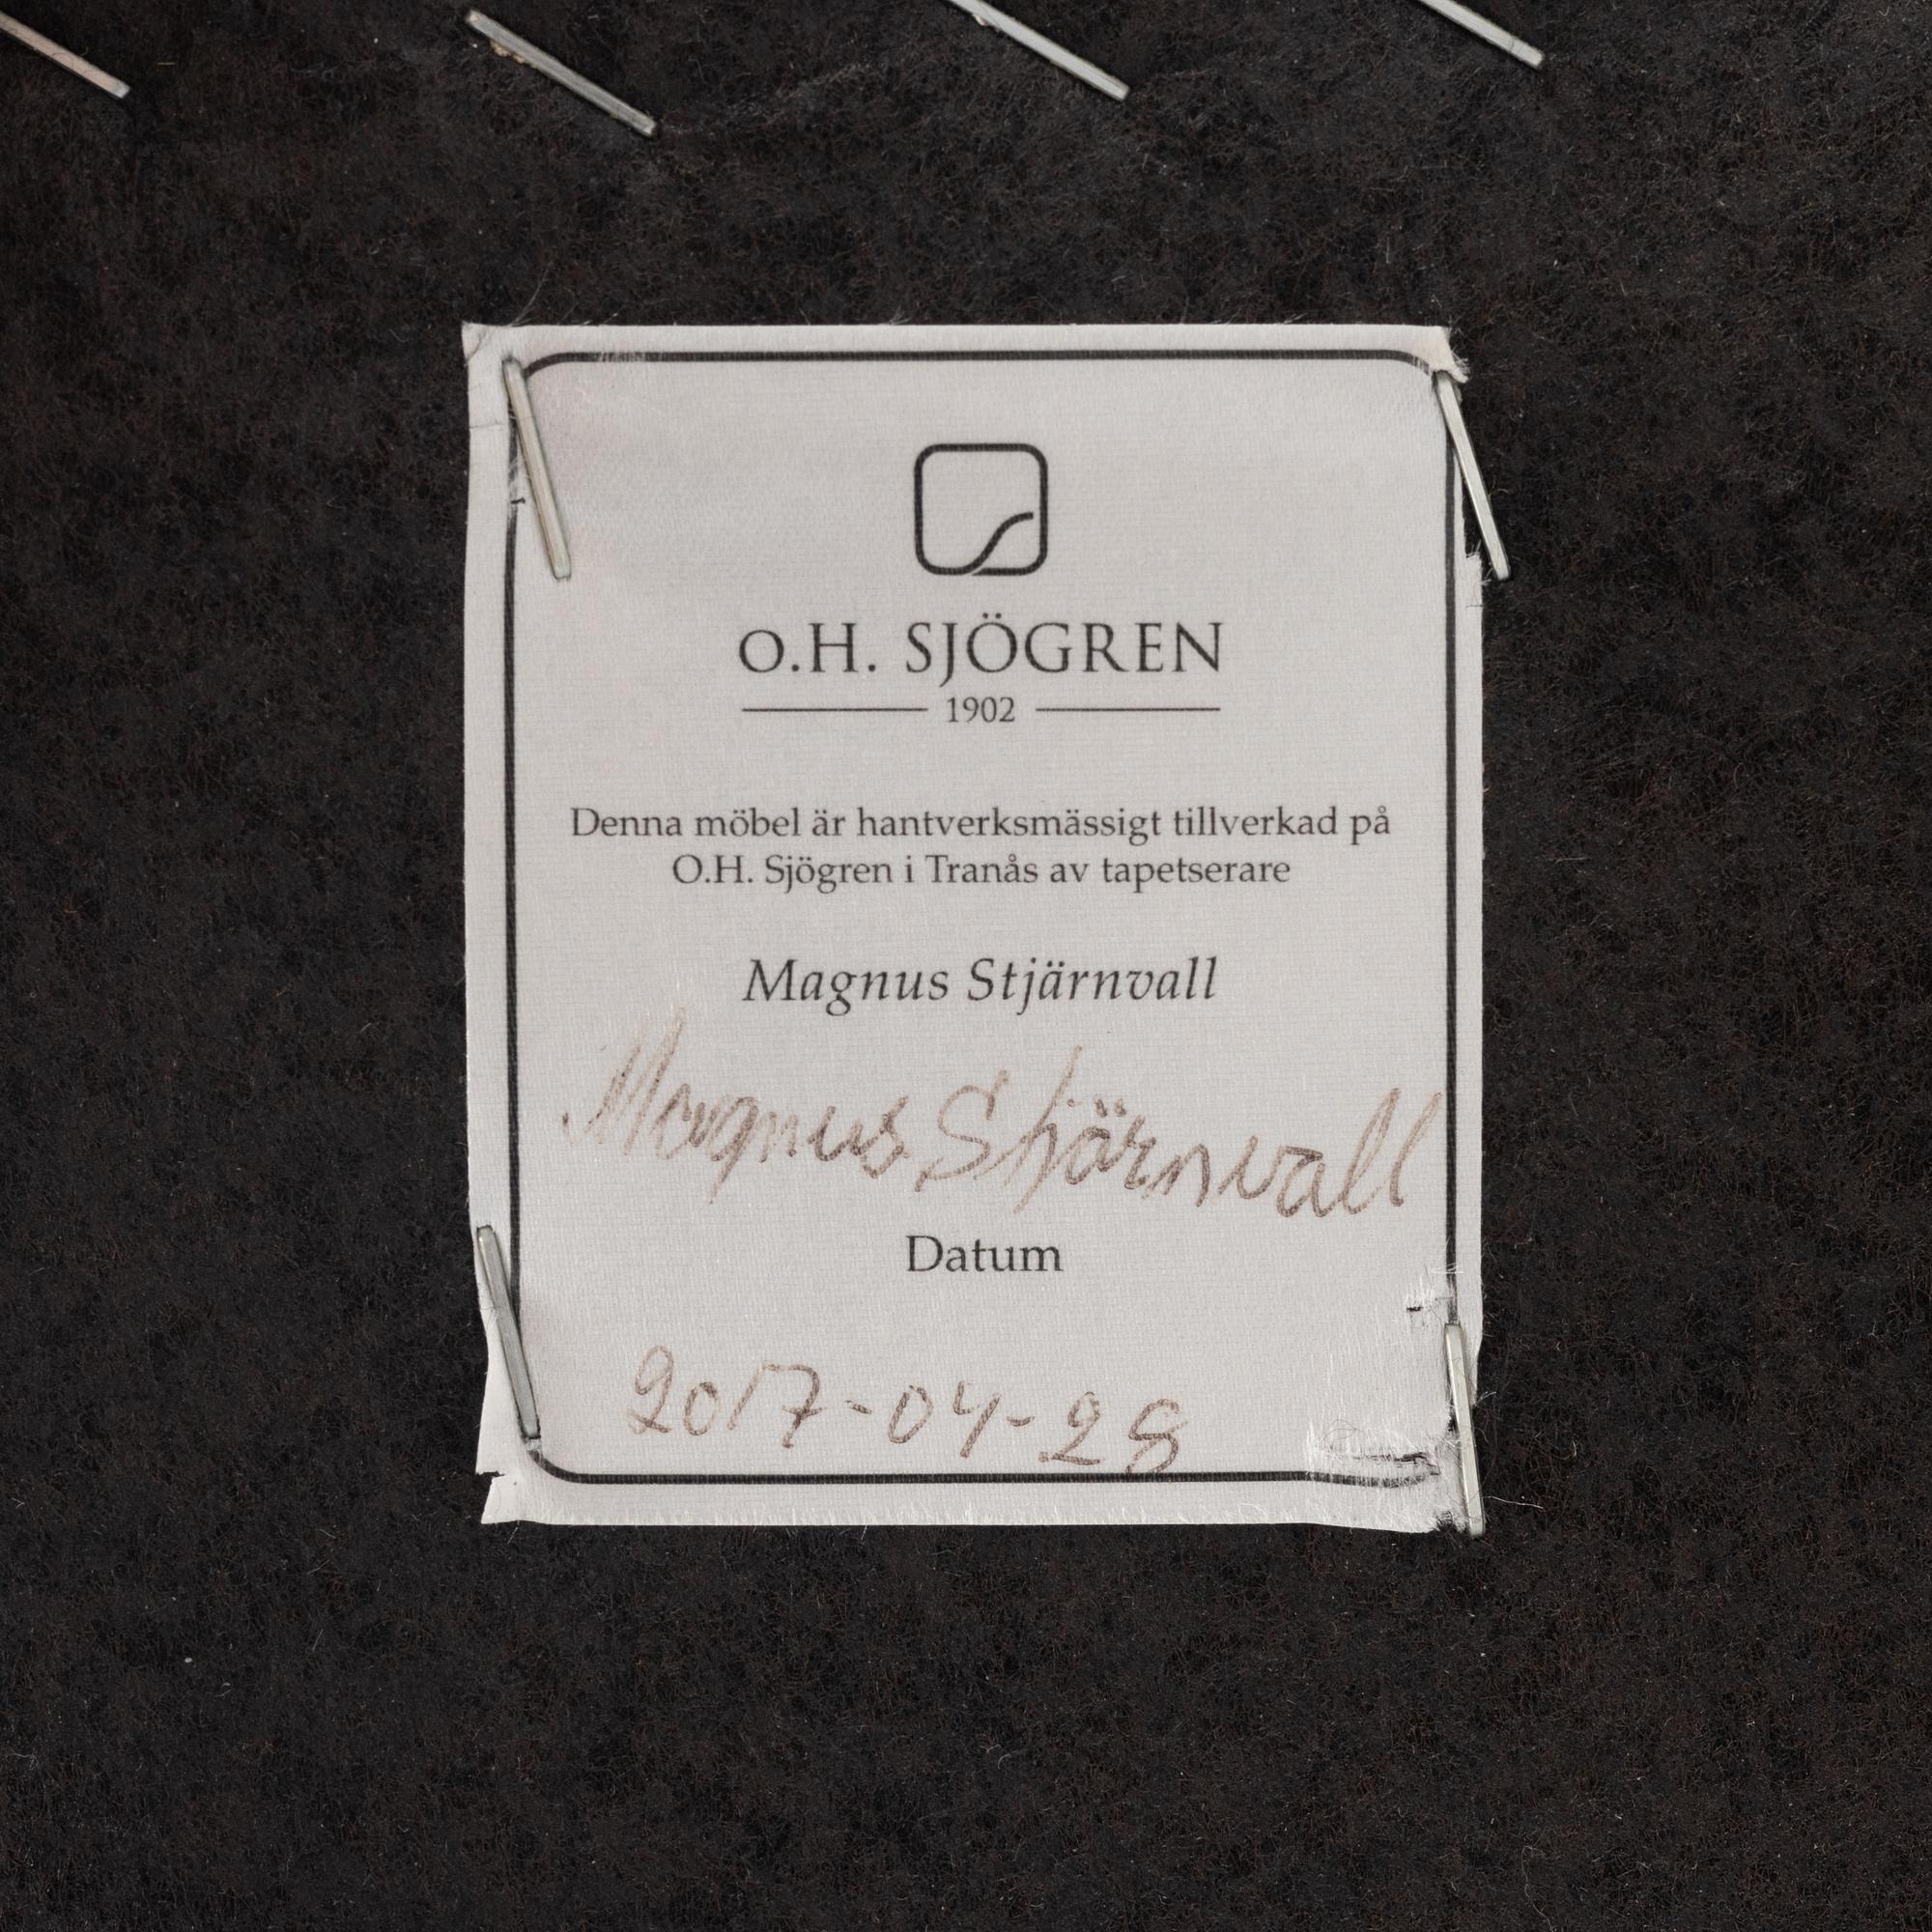 O.H. SJÖGREN
1902
Denna möbel är hantverksmässigt tillverkad på
O.H. Sjögren i Tranås av tapetserare
Magnus Stjärnvall
Magnus Stjärnvall
Datum
2017-04-28